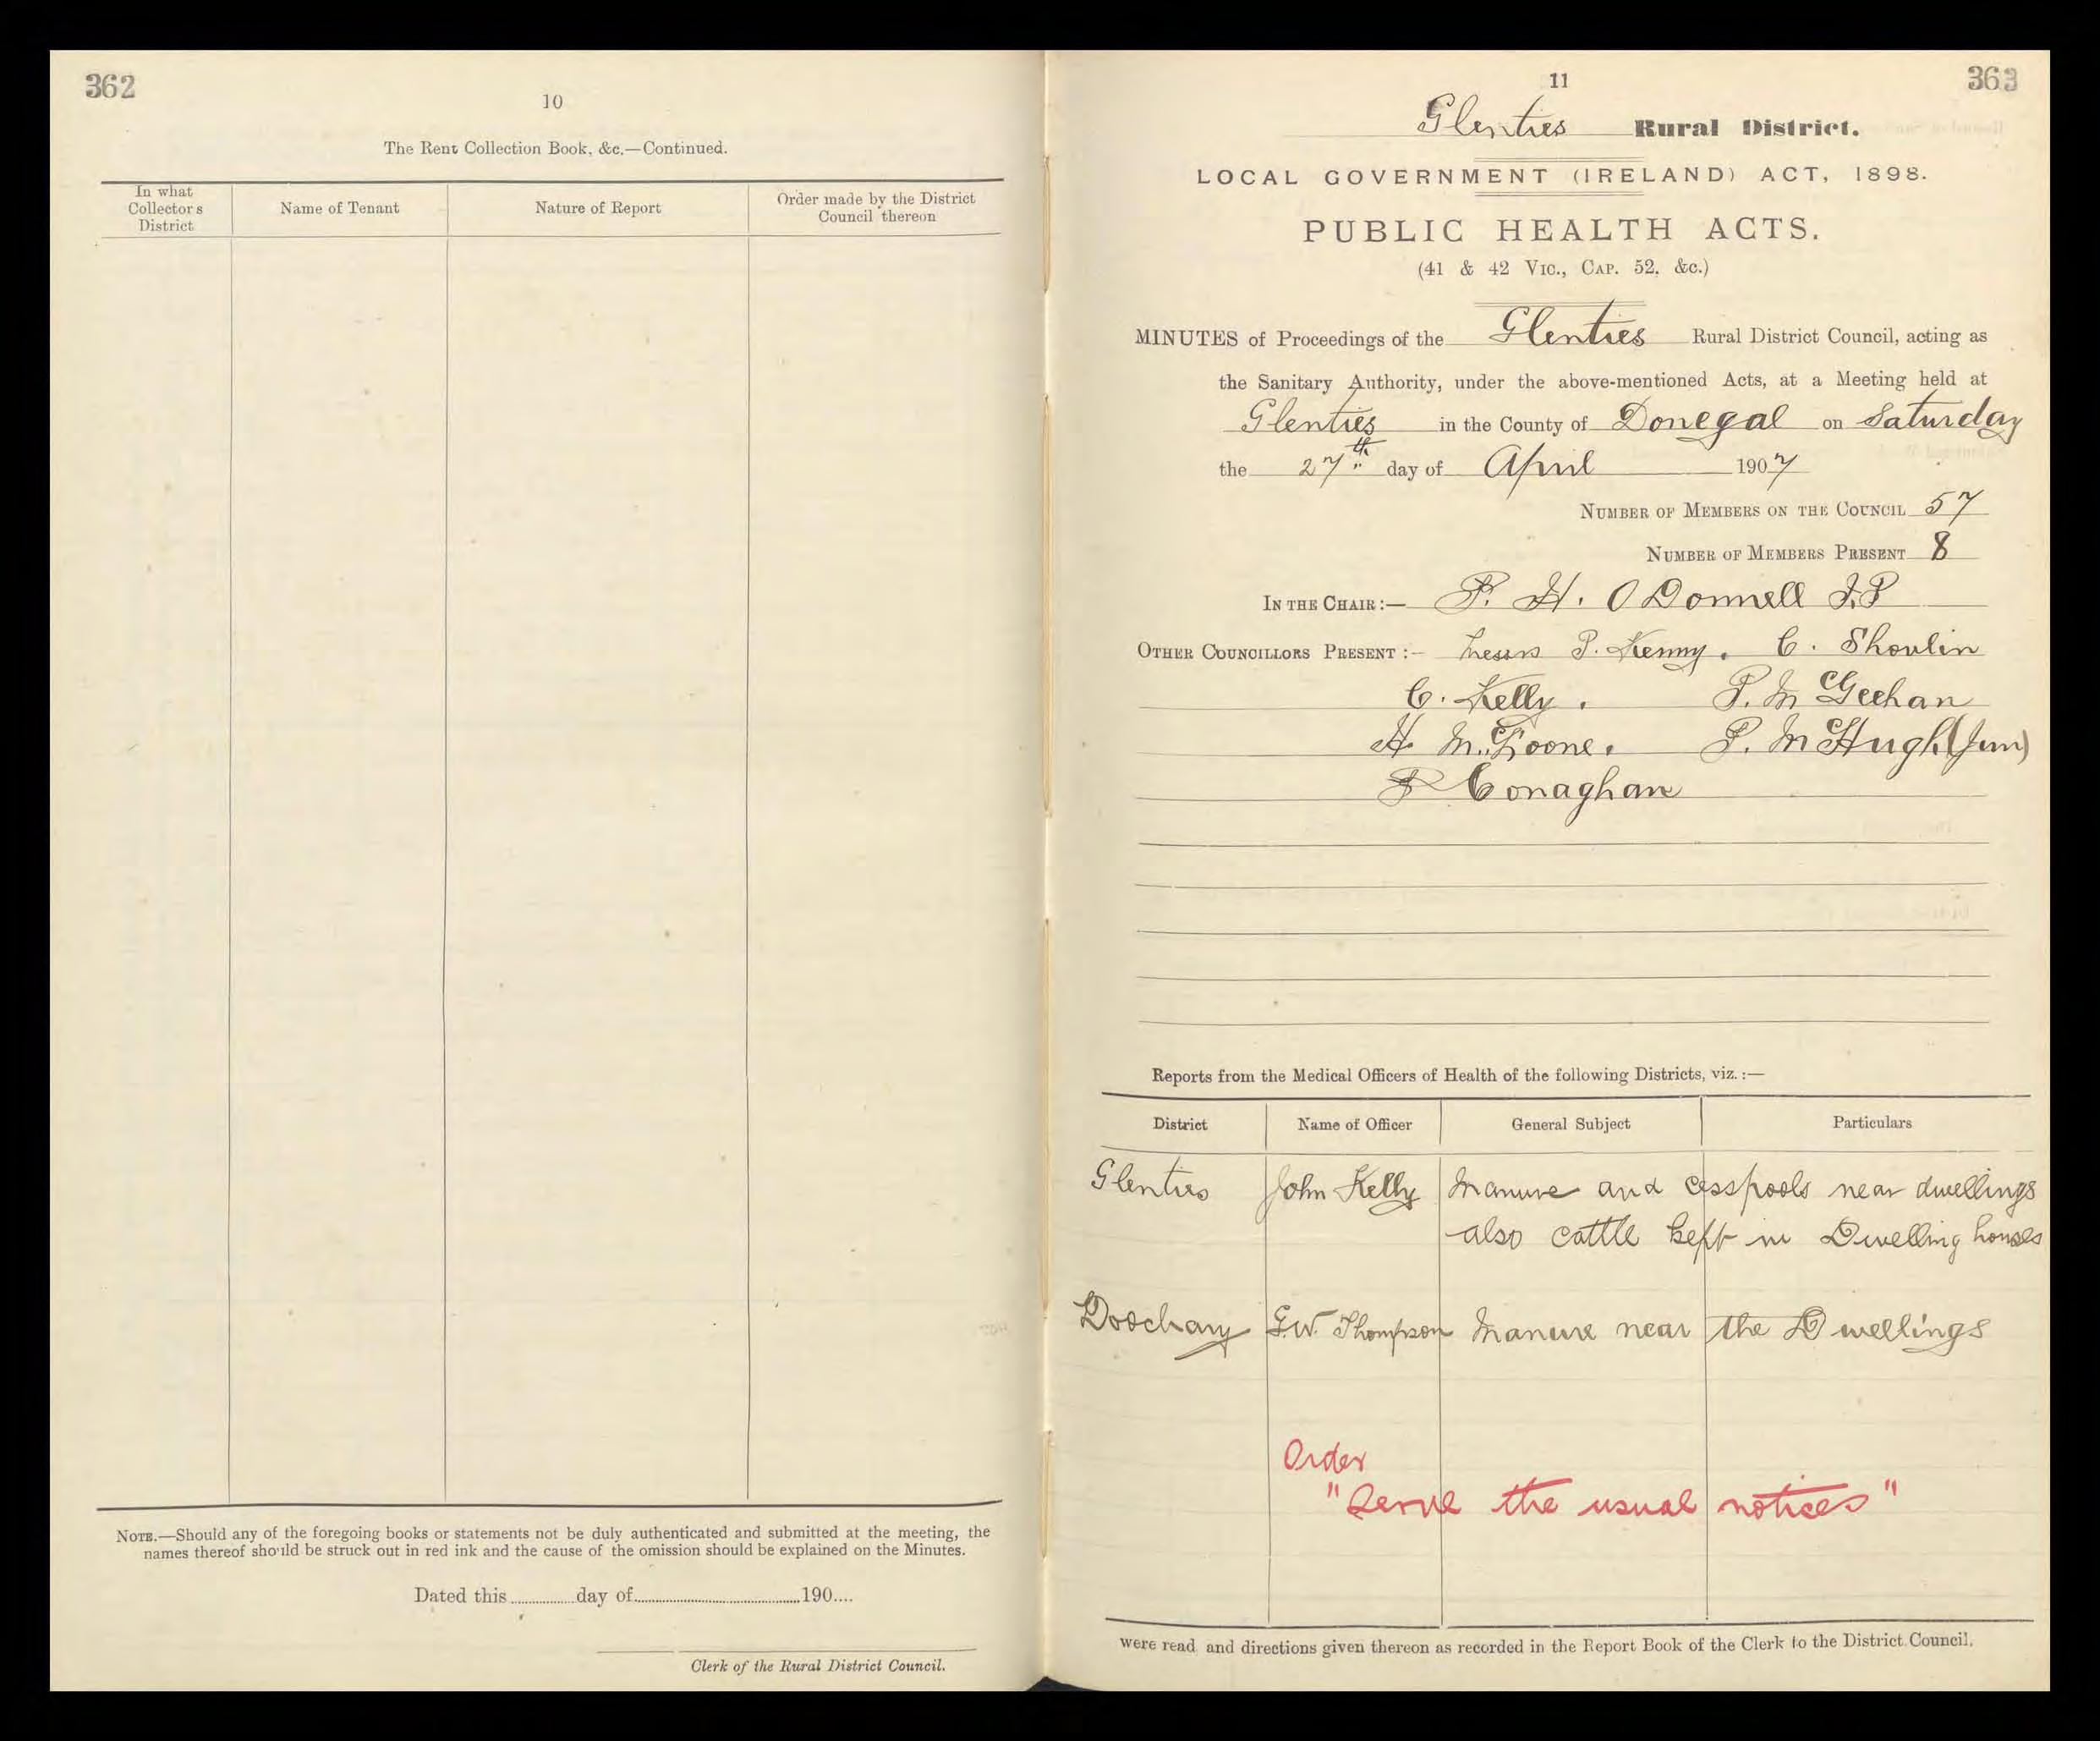 362
10
The Rent Collection Book, &c.—Continued.
In what Collectors District
Name of Tenant
Nature of Report
Order made by the District Council thereon
NOTE.—Should any of the foregoing books or statements not be duly authenticated and submitted at the meeting, the
names thereof should be struck out in red ink and the cause of the omission should be explained on the Minutes.
Dated this ........ day of ........ 190....
Clerk of the Rural District Council.
11
363
Glenties Rural District.
LOCAL GOVERNMENT (IRELAND) ACT, 1898.
PUBLIC HEALTH ACTS.
(41 & 42 VIC., CAP. 52, &c.)
MINUTES of Proceedings of the Glenties Rural District Council, acting as
the Sanitary Authority, under the above-mentioned Acts, at a Meeting held at
Glenties in the County of Donegal on Saturday
the 27th day of April 1907
NUMBER OF MEMBERS ON THE COUNCIL 57
NUMBER OF MEMBERS PRESENT 8
IN THE CHAIR:— P. H. O Donnell J.P
OTHER COUNCILLORS PRESENT:— Messrs P. Kenny. C. Shovlin
C. Kelly. P. McGeehan
H McLoone. P. McHugh (Jun)
P Conaghan
Reports from the Medical Officers of Health of the following Districts, viz.:—
District
Name of Officer
General Subject
Particulars
Glenties John Kelly Manure and cesspools near dwellings
also cattle kept in Dwelling houses
Doochary G.W. Thompson Manure near the Dwellings
Order
"Serve the usual notices"
were read and directions given thereon as recorded in the Report Book of the Clerk to the District Council.